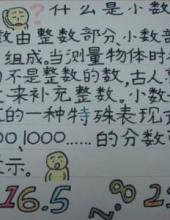 ?什么是小数
数由整数部分、小数部
组成。当测量物体时
的不是整数的数,古人
来补充整数。小数
的一种特殊表现
00,1000……的分数可
示。
16.5